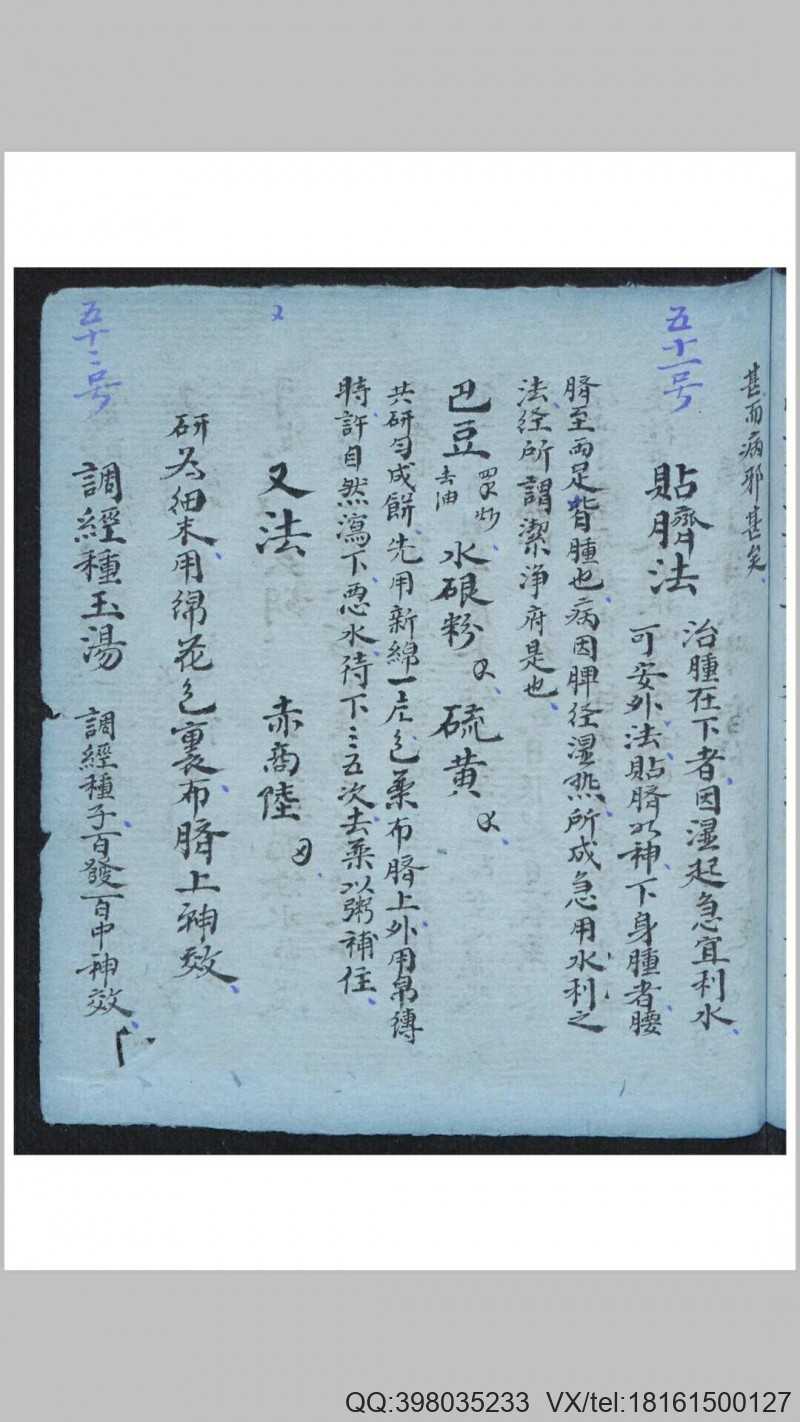 甚而病邪甚矣
五十一号
貼臍法 治腫在下者因湿起急宜利水
可安外法貼臍以神下身腫者腰
臍至両足背腫也病因脾径湿热所成急用水利之
法经所謂潔浄府是也
巴豆 去油 水艮粉 硫黄
共研匀成餅先用新綿一片包薬布臍上外用帛縛
時許自然瀉下恶水待下三五次去薬以粥補住
又法 赤商陸
研为细末用绵花包裹布臍上神效
五十二号
調經種玉湯 調經種子百發百中神效
QQ:398035233 VX/tel:18161500127